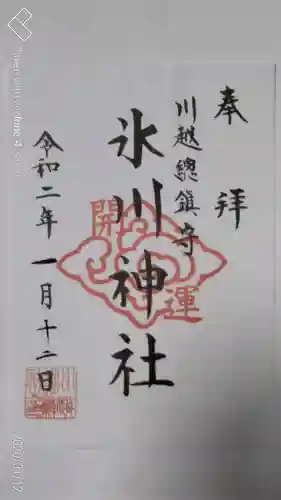 奉拝
川越總鎮守
氷川神社
開運
令和二年一月十二日
2020/01/12